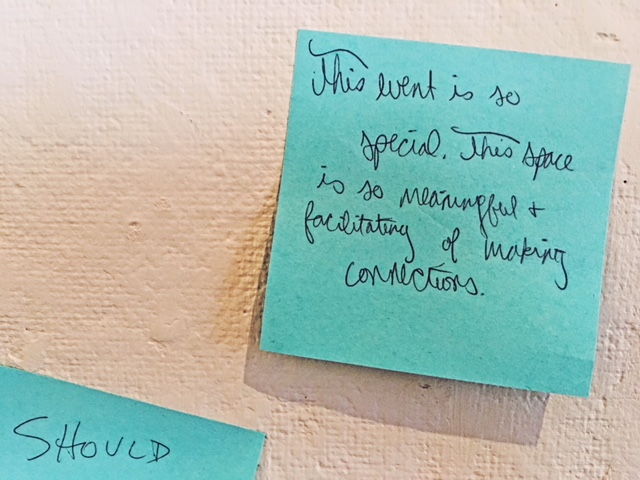 This event is so
special. This space
is so meaningful +
facilitating of making
connections.
SHOULD